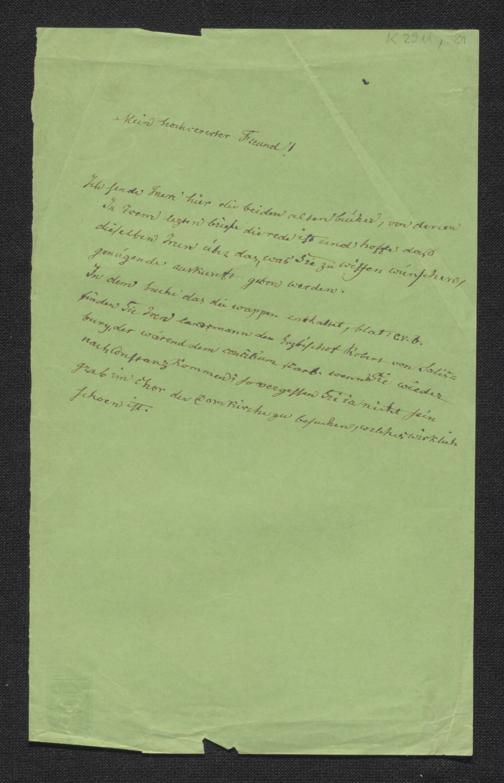 K 29 11, 21
Mein hochvererter Freund!
Ich sende Inen hier die beiden alten bücher, von denen
in Irem lezten briefe die rede ist und hoffe daß
dieselben Inen über das, was Sie zu wissen wunschen,
genugende auskunft geben werden.
In dem buche das die wappen enthaltet, blatt cr. b.
finden Sie Iren landsmann den Erzbischof Robert von Salis-
bury, der wärend dem concilium starb. wenn Sie wieder
nach Constanz kommen, so vergessen Sie ia nicht sein
grab im Chor der Domkirche zu besuchen, welches wirklich
schoen ist.